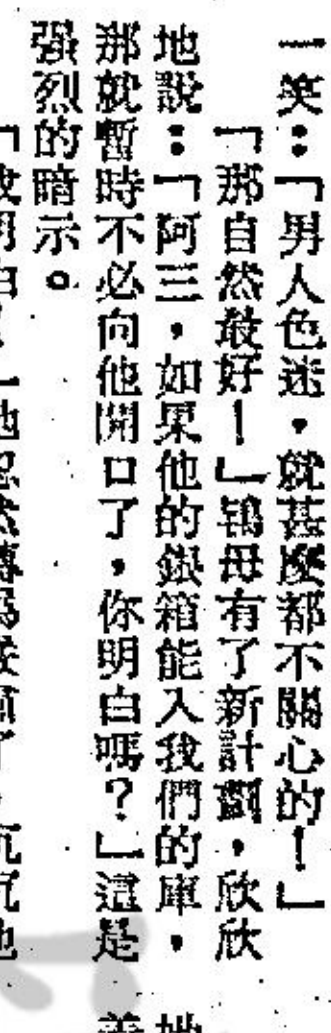 一笑：「男人色迷，就甚麼都不關心的！」
「那自然最好！」鴇母有了新計劃，欣欣
地說：「阿三，如果他的銀箱能入我們的庫，
那就暫時不必向他開口了，你明白嗎？」這是
强烈的暗示。